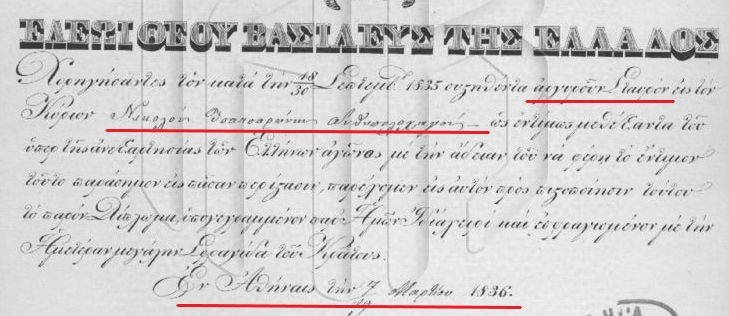 ΕΛΕΩι ΘΕΟΥ ΒΑΣΙΛΕΥΣ ΤΗΣ ΕΛΛΑΔΟΣ
Χορηγήσαντες τὸν κατὰ τὴν 18/30 Σεπτεμβ. 1835 συςηθέντα ἀργυροῦν Σταυρὸν εἰς τὸν
Κύριον Νικολόν ὡς ἐντίμως μεθέξαντα τοῦ
ὑπὲρ τῆς ἀνεξαρτησίας τῶν Ἑλλήνων ἀγῶνος μὲ τὴν ἄδειαν τοῦ νὰ φέρῃ τὸ ἔντιμον
τοῦτο παράσημον εἰς πᾶσαν περίςασιν, παρέχομεν εἰς αὐτὸν πρὸς πιςοποίησιν τούτου
τὸ παρὸν Δίπλωμα, ὑπογεγραμμένον παρ' Ἡμῶν Ἰδιοχείρως καὶ ἐσφραγισμένον μὲ τὴν
Ἡμετέραν μεγάλην Σφραγῖδα τοῦ Κράτους.
Ἐν Ἀθήναις τὴν 7/19 Μαρτίου 1836.